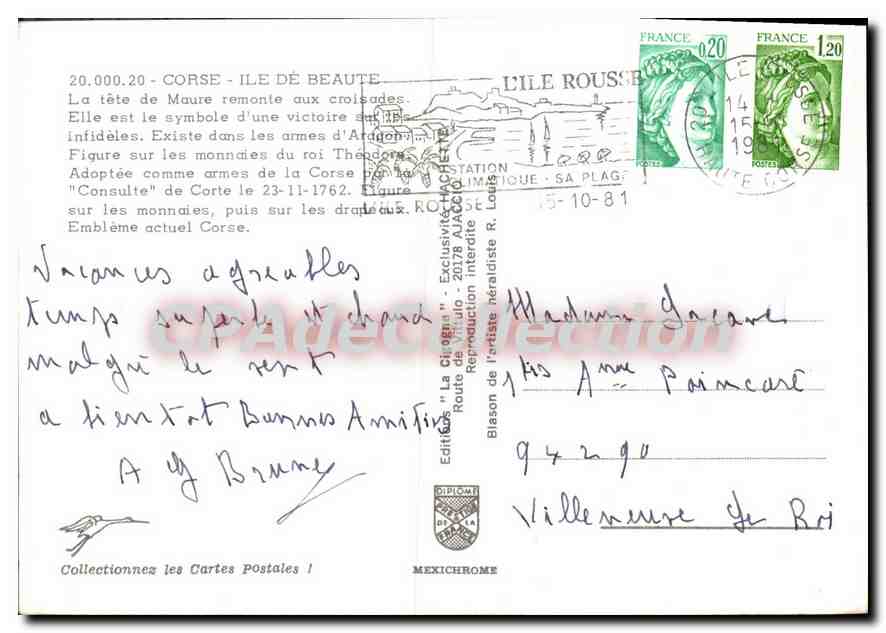 20.000.20 - CORSE - ILE DE BEAUTE
La tête de Maure remonte aux croisades.
Elle est le symbole d'une victoire sur les
infidèles. Existe dans les armes d'Aragon.
Figure sur les monnaies du roi Théodore.
Adoptée comme armes de la Corse par la
"Consulte" de Corte le 23-11-1762. Figure
sur les monnaies, puis sur les drapeaux.
Emblème actuel Corse.
Vacances agréables
temps superbe et chaud
malgré le vent
a bientot Bonnes Amitiés
A G Bruney
Collectionnez les Cartes Postales !
L'ILE ROUSSE
STATION
CLIMATIQUE - SA PLAGE
L'ILE ROUSSE
15-10-81
FRANCE 0,20
POSTES
FRANCE 1,20
POSTES
HAUTE CORSE
Editions "La Cigogne" - Exclusivité HACHETTE
Route de Vittulo - 20178 AJACCIO
Reproduction interdite
Blason de l'artiste héraldiste R. Louis
DIPLOME
PRESTIGE
DE LA
FRANCE
MEXICHROME
Madame
1 bis Poincaré
94290
Villeneuve Le Roi
CPAdeCollection